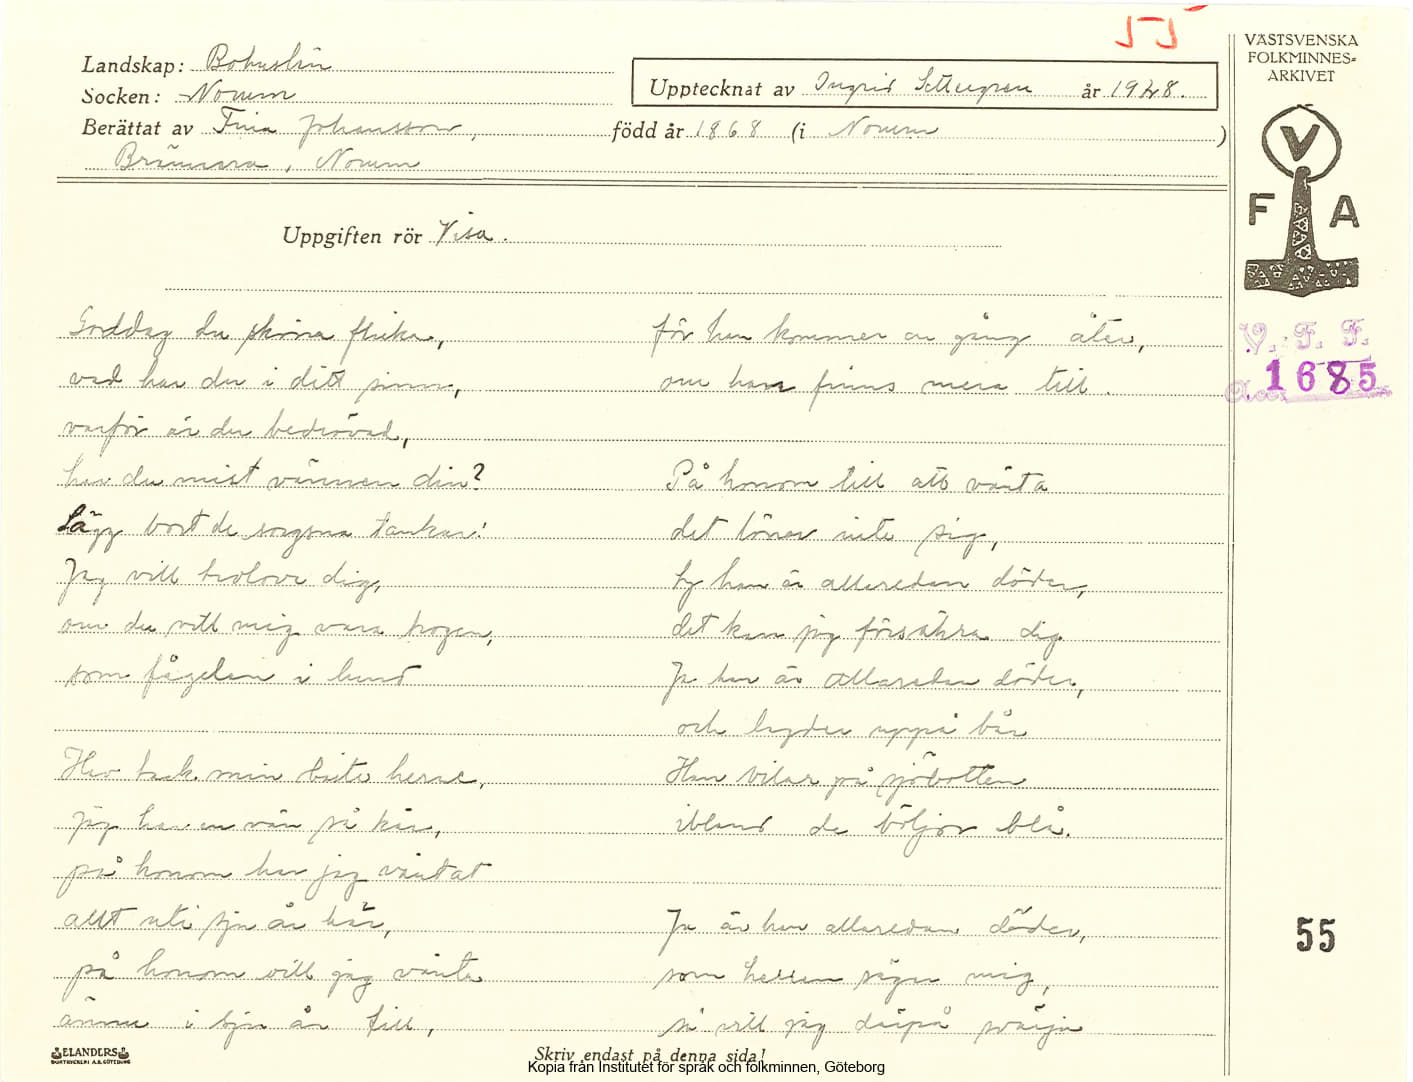 55
Landskap: Bohuslän
Socken: Norum
Berättat av Fina Johansson,
Brännara, Norum
Upptecknat av Ingrid Settergren år 1928.
född år 1868 (i Norum )
VÄSTSVENSKA
FOLKMINNES-
ARKIVET
V
F A
V. F. F.
Acc. 1685
Uppgiften rör Visa.
Goddag du sköna flicka,
vad har du i ditt sinne,
varför är du bedrövad,
har du mist vännen din?
Lägg bort de sorgsna tankar!
Jag vill trolova dig,
om du vill mig vara trogen,
som fågelen i lund
Hav tack min bäste herre,
jag har en vän så kär,
på honom har jag väntat
allt uti sju år här,
på honom vill jag vänta
ännu i sju år till,
för han kommer en gång åter,
om han finns mera till.
På honom till att vänta
det löner inte sig,
ty han är alleredan döder,
det kan jag försäkra dig
Ja han är allaredan döder,
och ligder uppå bår
Han vilar på sjöbotten
ibland de böljor blå.
Ja är han alleredan döder,
som herren säger mig,
så vill jag därpå svärja
55
ELANDERS
BOKTRYCKERI A.B. GÖTEBORG
Skriv endast på denna sida!
Kopia från Institutet för språk och folkminnen, Göteborg